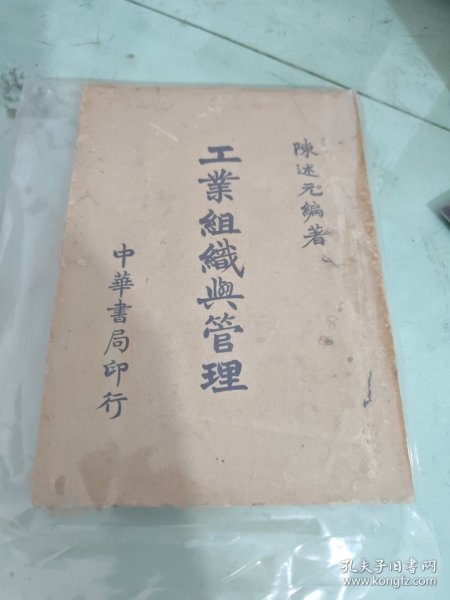 陳述元編著
工業組織與管理
中華書局印行
孔夫子旧书网
www.kongfz.com